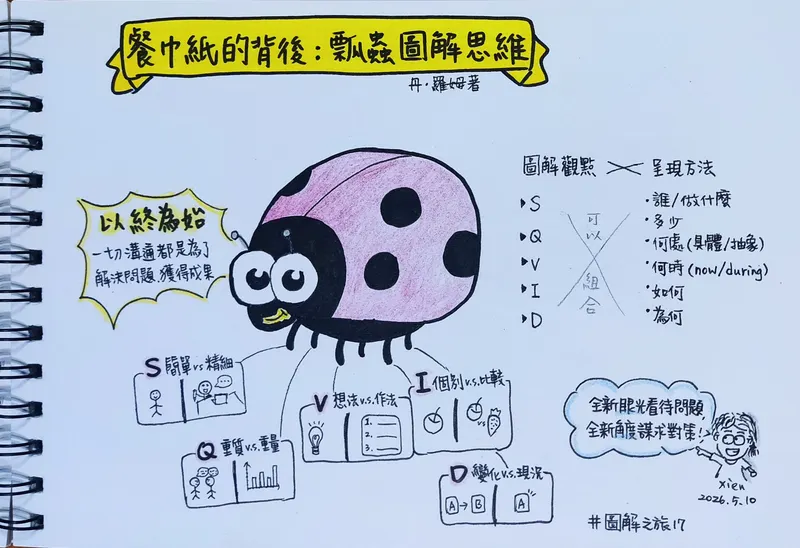 餐巾紙的背後：瓢蟲圖解思維
丹·羅姆著
以終為始
一切溝通都是為了
解決問題,獲得成果
圖解觀點 呈現方法
S
Q
V
I
D
可以組合
·誰/做什麼
·多少
·何處(具體/抽象)
·何時(now/during)
·如何
·為何
S 簡單vs精細
Q 重質v.s.重量
V 想法v.s.作法
1.
2.
3.
I 個別v.s.比較
vs
D 變化v.s.現況
A→B
A
全新眼光看待問題,
全新角度謀求對策!
Xien
2026.5.10
#圖解之旅17